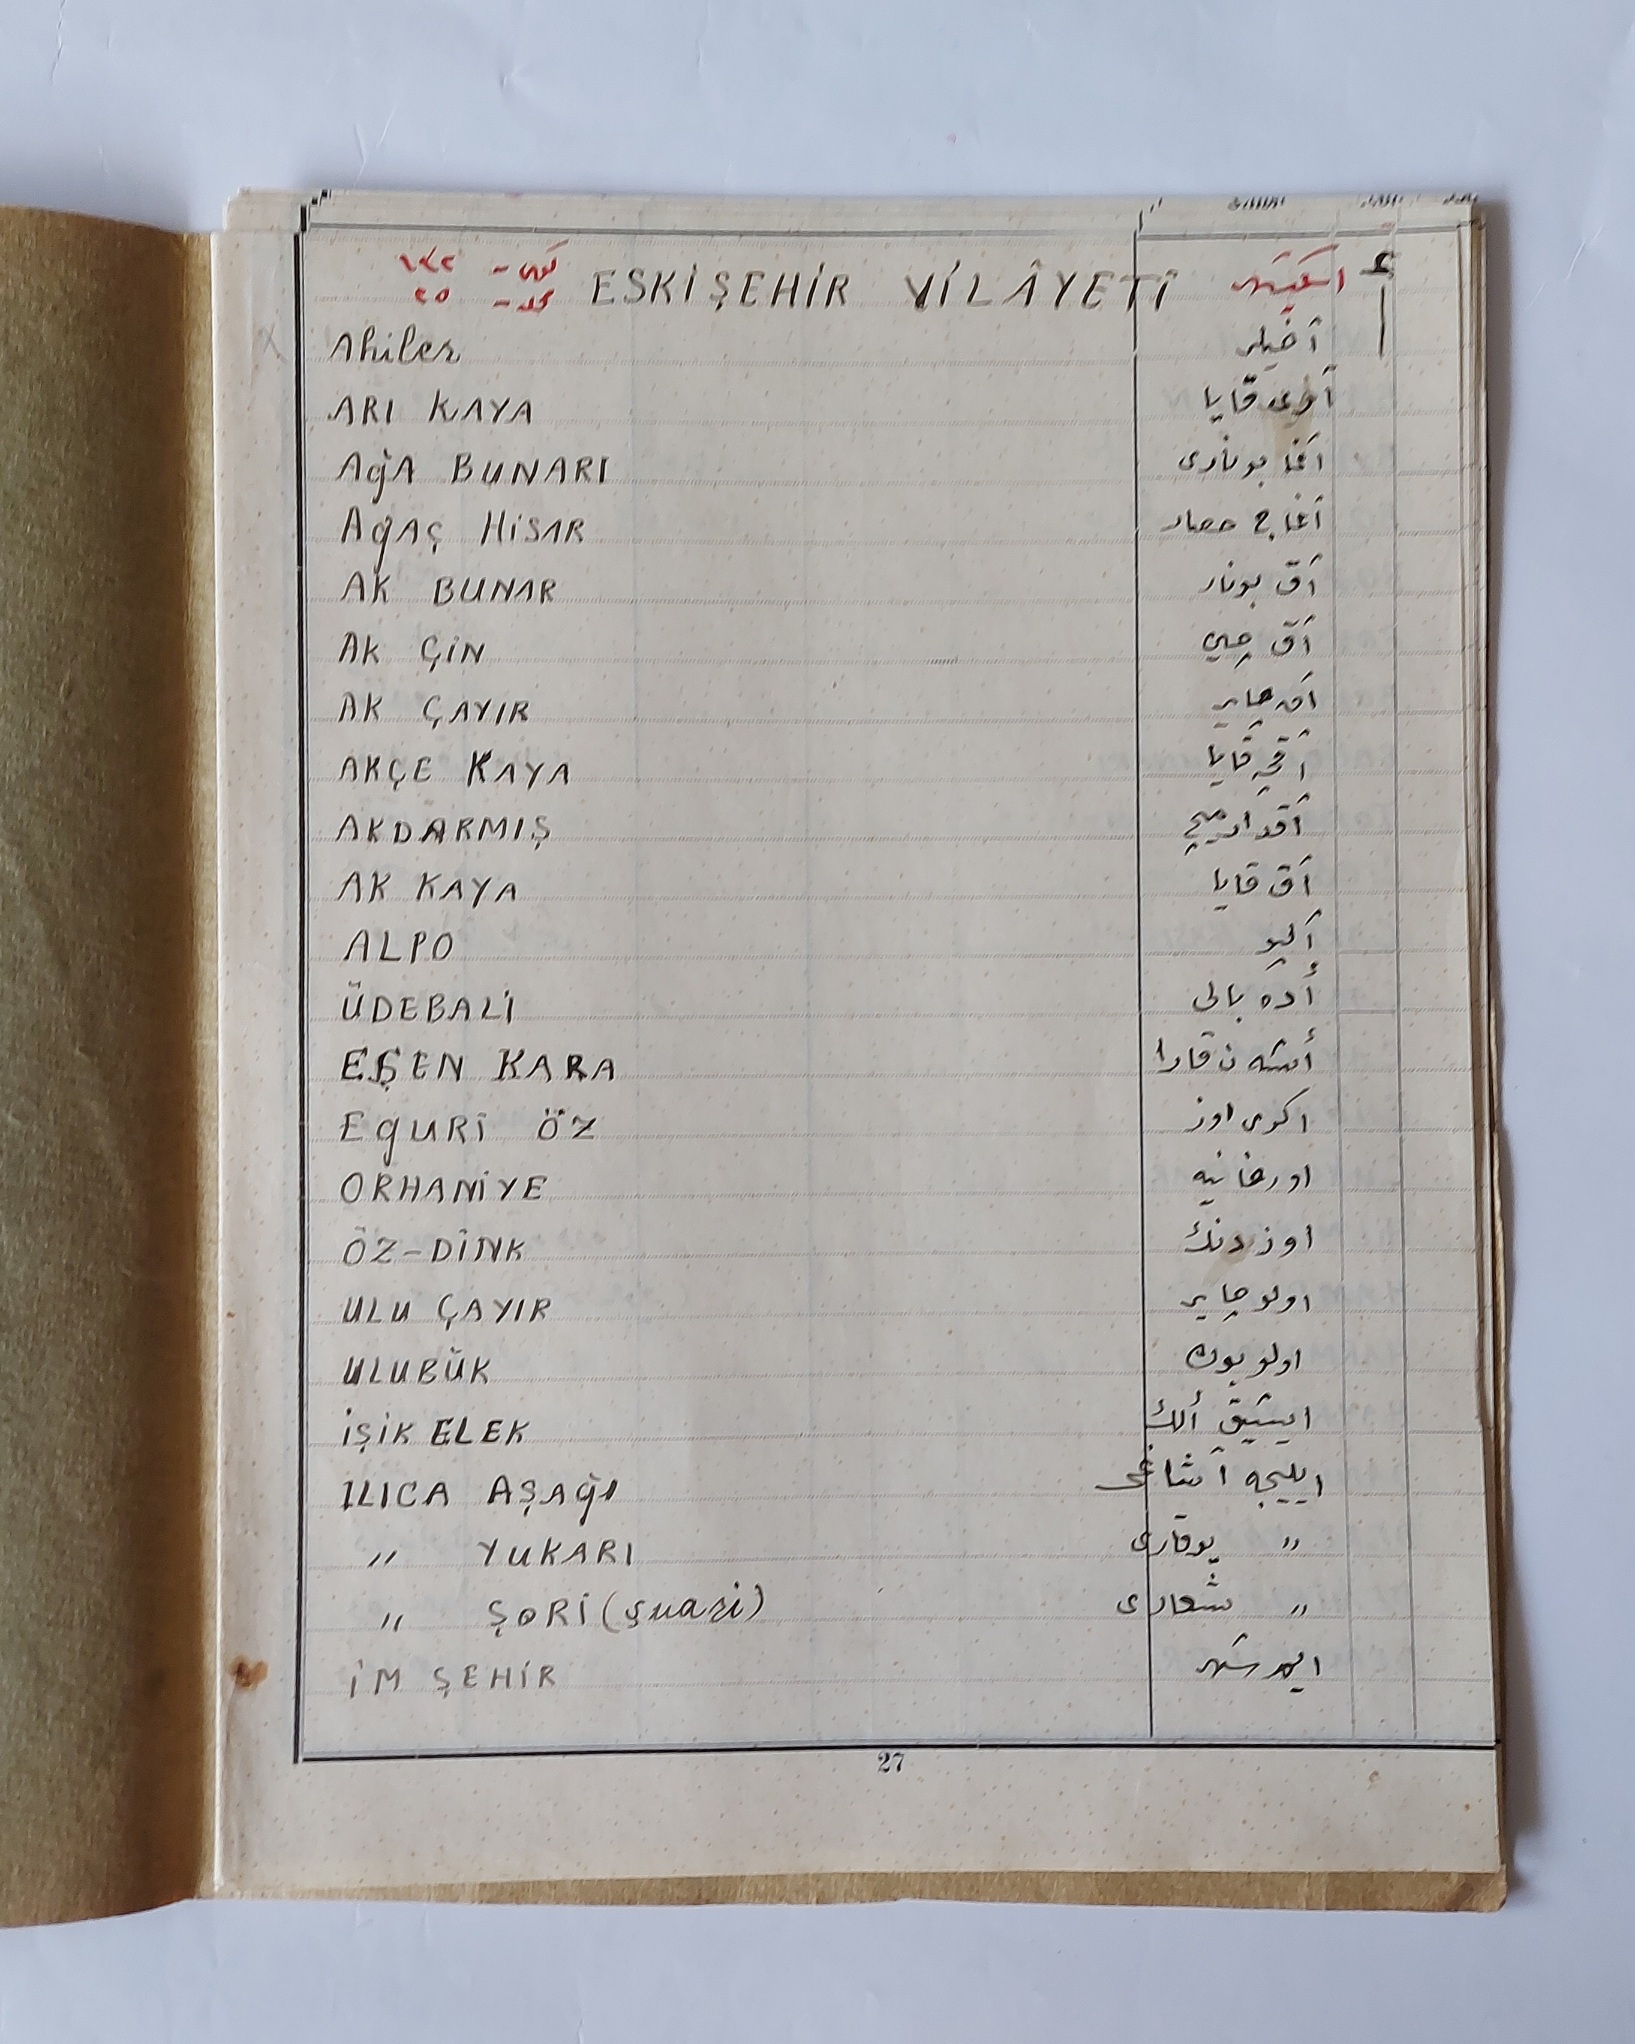 ESKİŞEHİR VİLÂYETİ اسكيشهر
Ahiler آخيلر
ARI KAYA آرى قايا
AğA BUNARI آغا بونارى
Ağaç HiSAR آغاج حصار
AK BUNAR آق بونار
AK ÇiN آق چين
AK ÇAYIR آق چاير
AKÇE KAYA آقچه قايا
AKDARMIŞ
AK KAYA آق قايا
ALPO آلپو
ÜDEBALİ أده بالى
EŞEN KARA أشه ن قارا
EguRİ ÖZ اكرى اوز
ORHANİYE اورخانيه
ÖZ-DİNK اوز دنك
ULU ÇAYIR اولو چاير
ULUBÜK اولو بوك
iŞiK ELEK ايشيق ألك
ILICA AŞAğI ايليجه آشاغى
" YUKARI " يوقارى
" ŞORİ (şuari) " شعارى
İM ŞEHİR ايم شهر
27